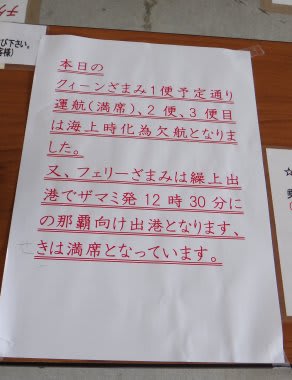 び下さい。
客様)
本日の
クィーンざまみ1便予定通り
運航(満席)、2便、3便目
は海上時化為欠航となりま
した。
又、フェリーざまみは繰上出
港でザマミ発12時30分に
の那覇向け出港となります、
きは満席となっています。